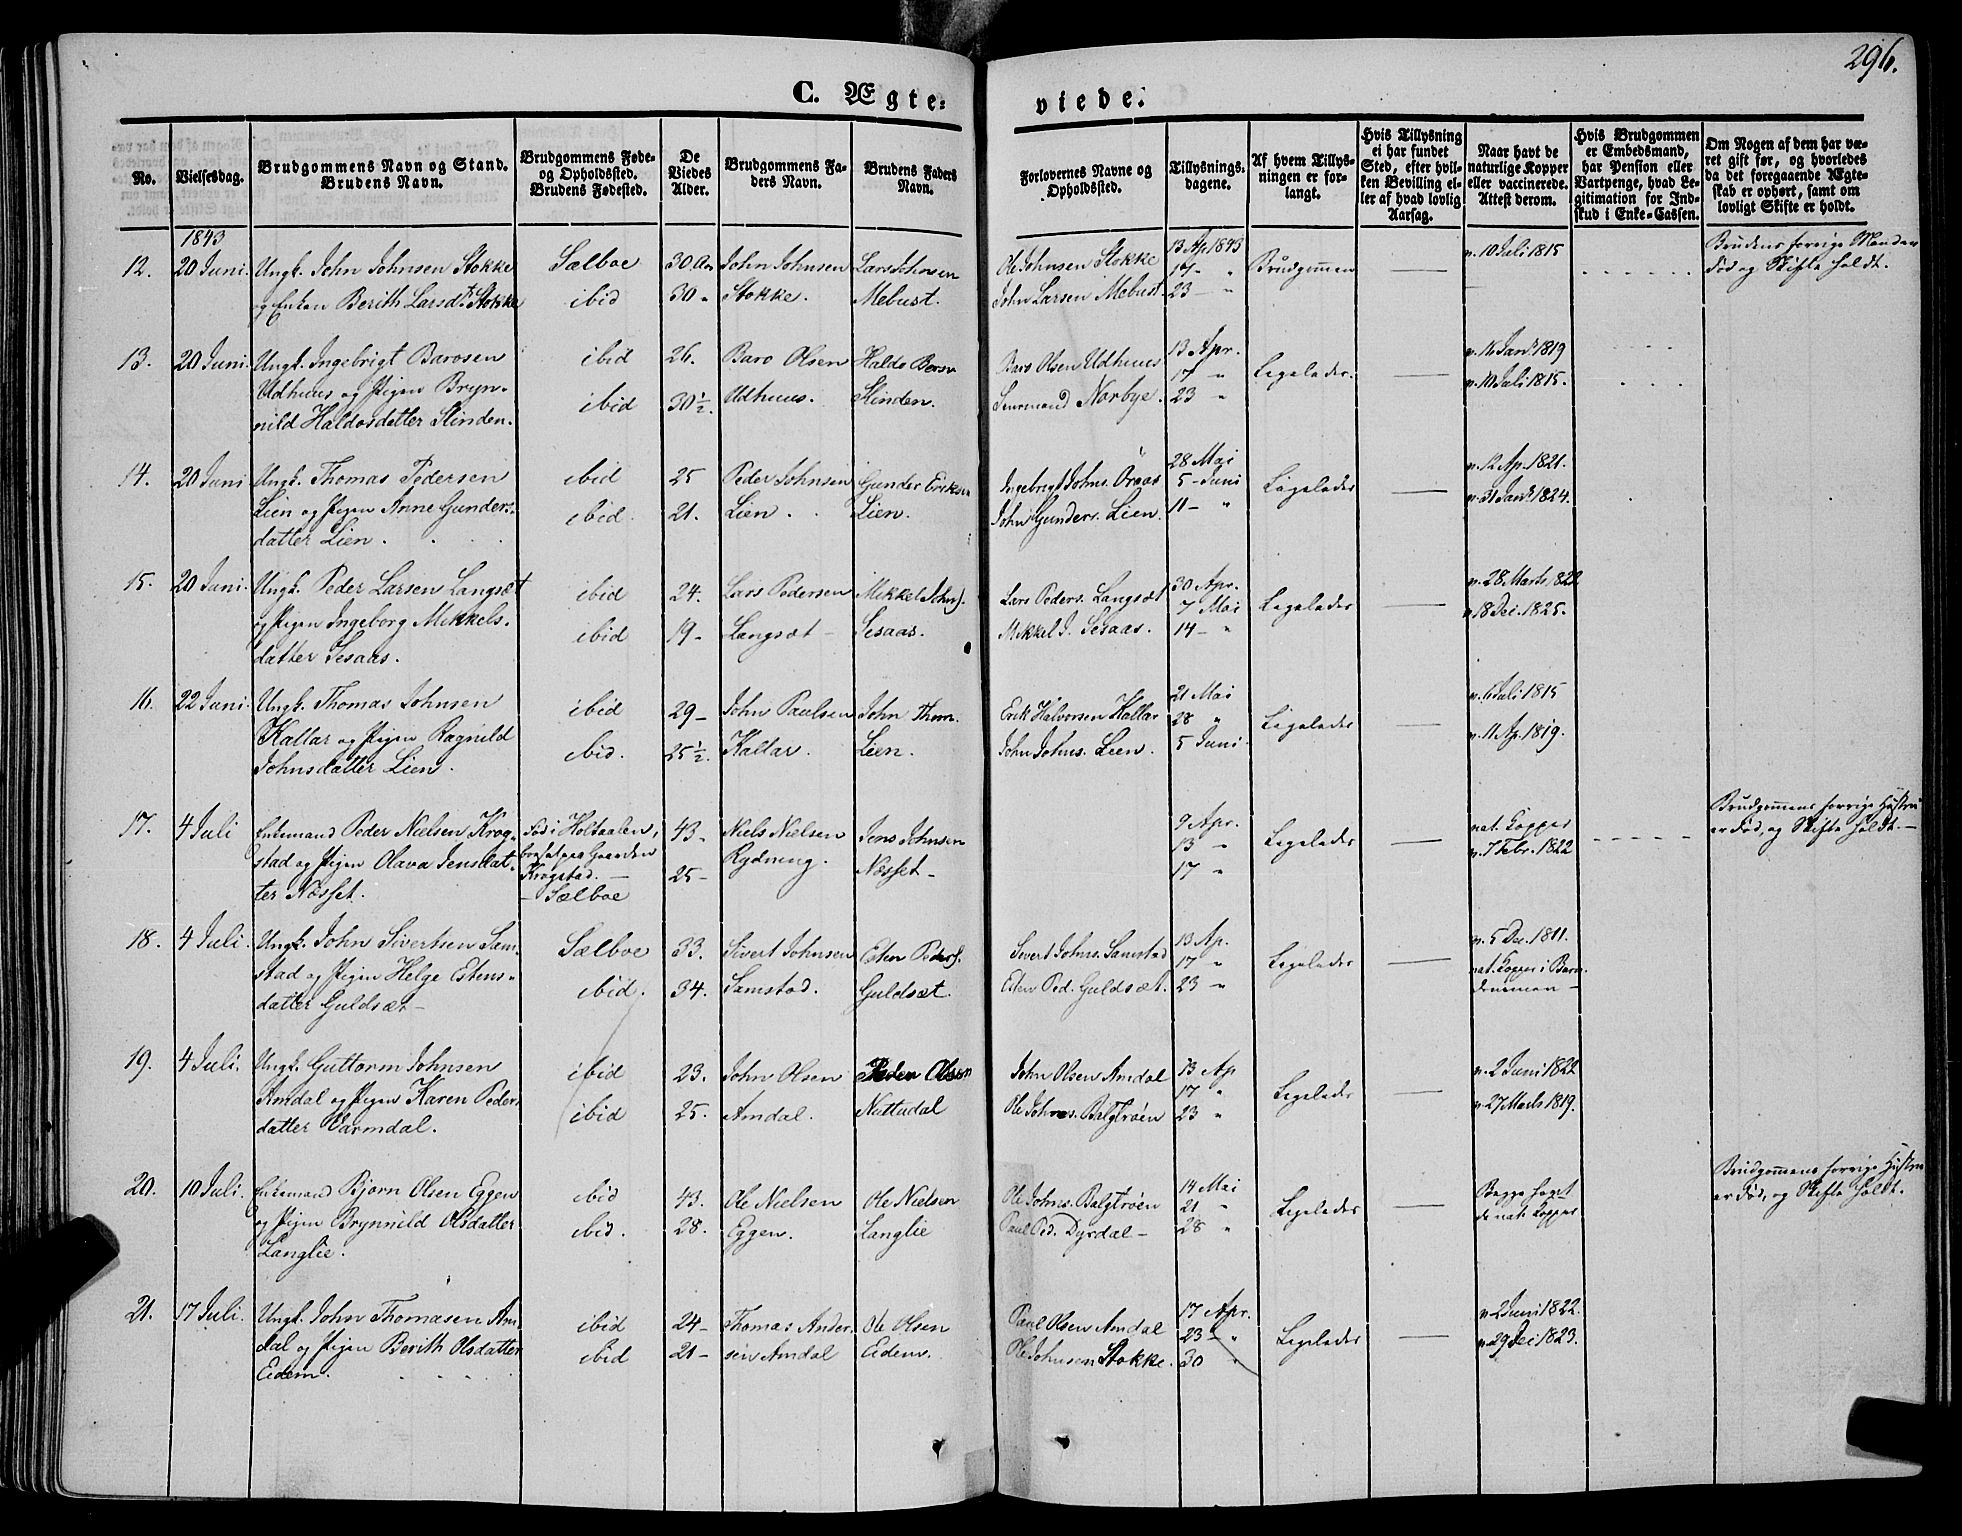 296.
C. Ægte- viede.
No.
Vielsesdag.
Brudgommens Navn og Stand.
Brudens Navn.
Brudgommens Føde-
og Opholdssted.
Brudens Fødested.
De
Viedes
Alder.
Brudgommens Fa-
ders Navn.
Brudens Faders
Navn.
Forlovernes Navne og
Opholdssted.
Tillysnings-
dagene.
Af hvem Tillys-
ningen er for-
langt.
Hvis Tillysning
ei har fundet
Sted, efter hvil-
ken Bevilling el-
ler af hvad lovlig
Aarsag.
Naar havt de
naturlige Kopper
eller vaccinerede.
Attest derom.
Hvis Brudgommen
er Embedsmand,
har Pension eller
Vartpenge, hvad Le-
gitimation for Ind-
skud i Enke-Cassen.
Om Nogen af dem har væ-
ret gift før, og hvorledes
da det foregaaende Ægte-
skab er ophørt, samt om
lovligt Skifte er holdt.
1843
12. 20 Juni. Ungk. John Johnsen Stokke Sælboe 30 Aar John Johnsen Lars Johnsen Ole Johnsen Stokke 13 Ap. 1843 Brudgommen v. 10 Juli 1815 Brudens forrige Mand er
og Enken Berith Larsdtr Stokke ibid 30 " Stokke. Mebust. John Larsen Mebust. 17 - " død og Skifte holdt.
23 - "
13. 20 Juni. Ungk. Ingebrigt Barosen ibid 26. Baro Olsen Haldo Bersv Baro Olsen Udhuus 13 Apr. Ligeledes. v. 16 Janr 1819
Udhuus og Pigen Bryn- ibid 30½. Udhuus. Slinden. Norbye. 17 " v. 10 Juli 1815.
nild Haldosdatter Slinden. 23 "
14. 20 Juni Ungk. Thomas Pedersen ibid 25 Peder Johnsen Gunder Eriksen Ingebrigt Johns. Øraas 28 Mai Ligeledes v. 12 Ap. 1821.
Lien og Pigen Anne Gunders- ibid. 21. Lien. Lien. John Gunders. Lien. 5 - Juni v. 31 Janr 1824.
datter Lien. 11 - "
15. 20 Juni. Ungk. Peder Larsen Langsæt ibid 24. Lars Pedersen Mikkel Johns. Lars Peders. Langsæt 30 Apr. Ligeledes v. 28 Marts 1822
og Pigen Ingeborg Mikkels- ibid 19 - Langsæt - Sesaas. Mikkel J. Sesaas. 7 Mai v. 18 Dei. 1825.
datter Sesaas. 14 - "
16. 22 Juni. Ungk. Thomas Johnsen ibid 29 - John Paulsen John Thom. Erik Halvorsen Kallar 21 Mai Ligeledes v. 6 Juli 1815
Kallar og Pigen Ragnild ibid. 25½. Kallar. Lien. John Johns. Lien. 28 " v. 11 Ap. 1819.
Johnsdatter Lien. 5 Juni.
17. 4 Juli Enkemand Peder Nielsen Krog- Fød i Holtaalen, 43 - Niels Nielsen Jens Johnsen 9 Apr. Ligeledes nat. Kopper Brudgommens forrige Hustru
stad og Pigen Olava Jensdat- bosat paa Gaarden 25 - Rydning. Næsset - 13 " v. 7 Febr. 1822 er død, og Skifte holdt. -
ter Næsset. Krogstad. - 17 "
- Sælboe
18. 4 Juli. Ungk. John Sivertsen Sam- Sælboe 33. Sivert Johnsen Esten Peders. Sivert Johns. Samstad 13 Ap. Ligeledes v. 5 Dec. 1811.
stad og Pigen Helge Estens- ibid. 34. Samstad. Guldsæt. Esten Ped. Guldsæt. 17 " nat. Kopper i Barn-
datter Guldsæt - 23 " dommen -
19. 4 Juli. Ungk. Guttorm Johnsen ibid 23. John Olsen Peder Olsen John Olsen Amdal 13 Ap Ligeledes v. 2 Juni 1822
Amdal og Pigen Karen Peders- ibid 25. Amdal. Nattudal Ole Johns. Balgtrøen 17 " v. 27 Marts 1819.
datter Varmdal. 23 "
20. 10 Juli. Enkemand Bjørn Olsen Eggen ibid 43. Ole Nielsen Ole Nielsen Ole Johns. Balgtrøen 14 Mai Ligeledes Begge havt Brudgommens forrige Hustru
og Pigen Brynnild Olsdatter ibid. 28. Eggen. Langlie Paul Ped. Dyrdal - 21 " de nat. Kopper er død, og Skifte holdt.
Langlie. 28 "
21. 17 Juli. Ungk. John Thomasen Am- ibid 24 - Thomas Ander- Ole Olsen Paul Olsen Amdal 17 Apr. Ligeledes v. 2 Juni 1822.
dal og Pigen Berith Olsdatter ibid 21 - sen Amdal Eidem. Ole Johnsen Stokke. 23 - " v. 29 Dei 1823.
Eidem. 30 "